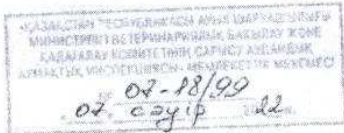 «ҚАЗАҚСТАН РЕСПУБЛИКАСЫ АУЫЛ ШАРУАШЫЛЫҒЫ
МИНИСТРЛІГІ ВЕТЕРИНАРИЯЛЫҚ БАҚЫЛАУ ЖӘНЕ
ҚАДАҒАЛАУ КОМИТЕТІНІҢ САРЫСУ АУДАНДЫҚ
АУМАҚТЫҚ ИНСПЕКЦИЯСЫ» МЕМЛЕКЕТТІК МЕКЕМЕСІ
№ 07-18/99
"07" сәуір 22